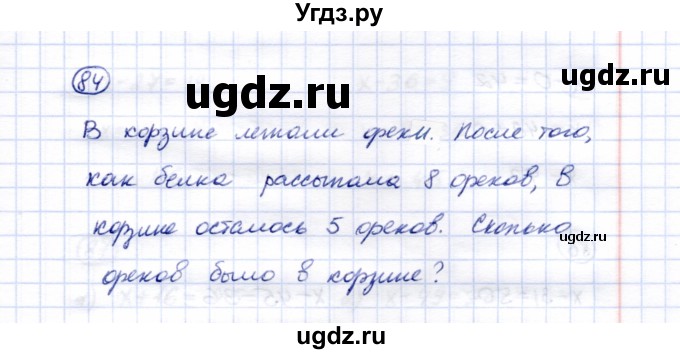 Угдз.ру
84
ugdz.ru
В корзине лежали орехи. После того,
как белка рассыпала 8 орехов, в
корзине осталось 5 орехов. Сколько
ugdz.ru
орехов было в корзине?
ugdz.ru